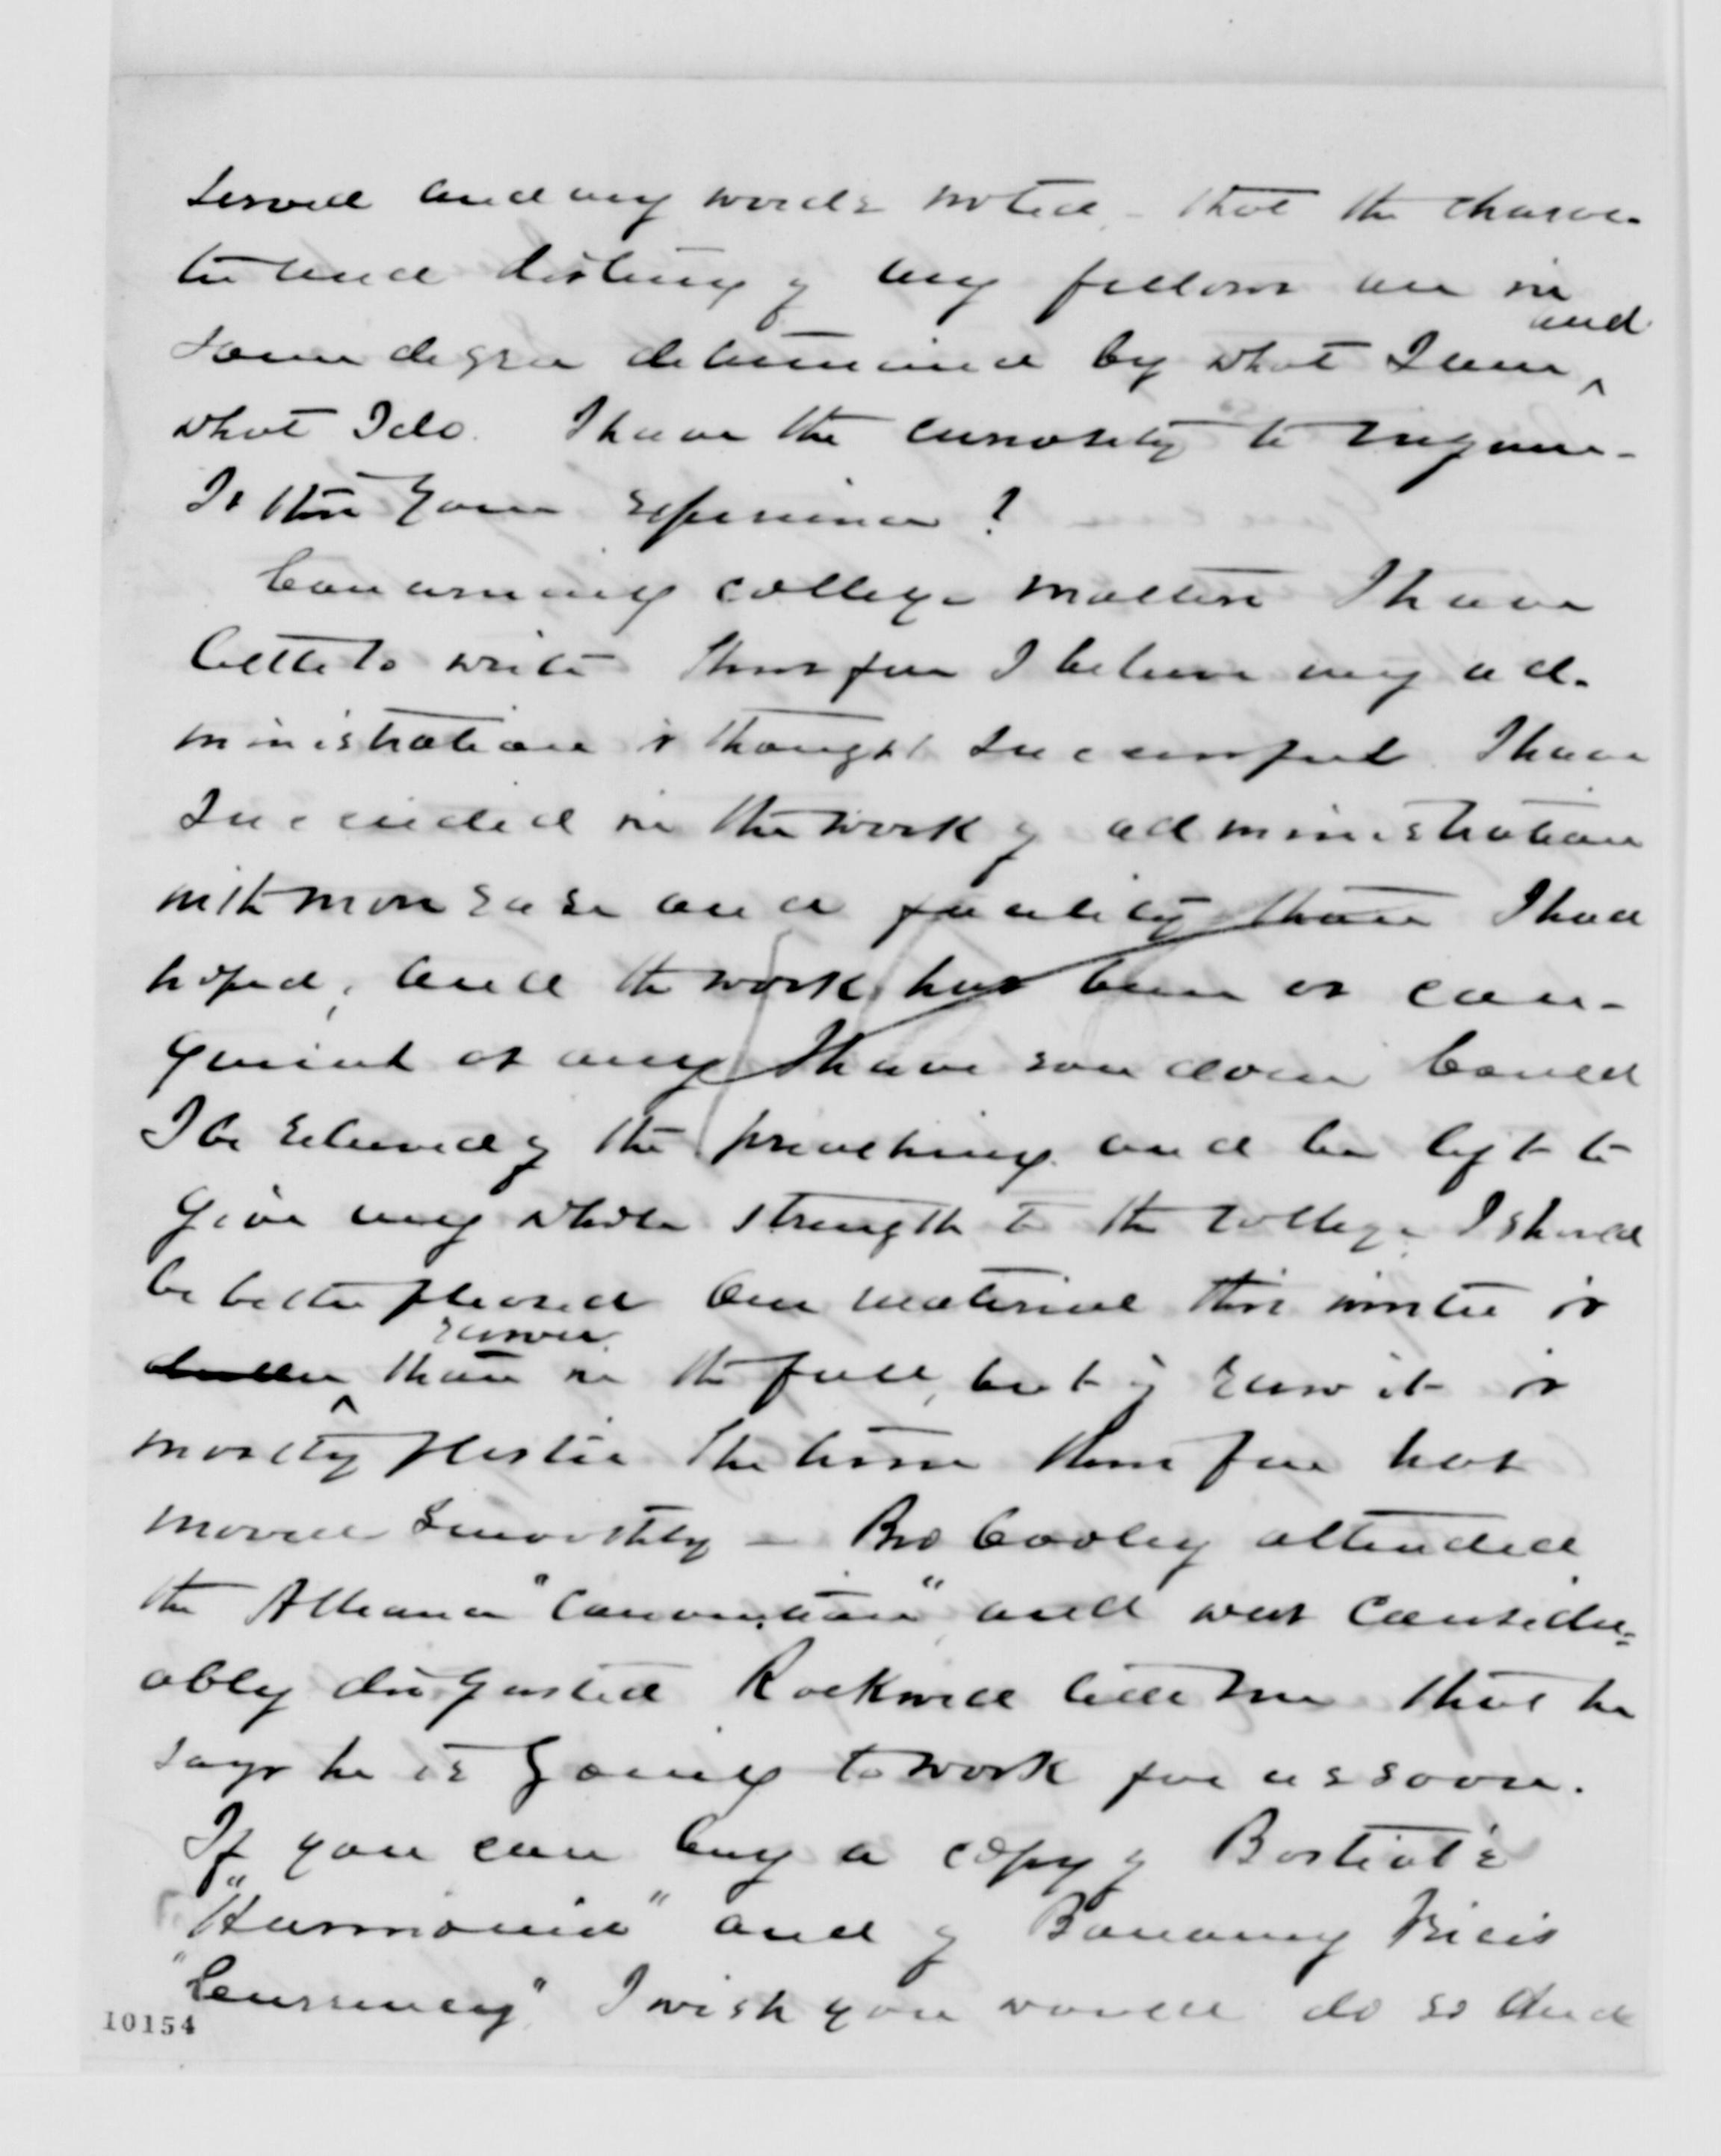 served and my words noted - that the charac-
ter and destiny of my fellows are in
some degree determined by what I am and
what I do. I have the curiosity to inquire -
Is this your experience?
Concerning college matters I have
little to write Thus far I believe my ad-
ministration is thought successful. I have
succeeded in the work of administration
with more ease and facility than I had
hoped, and the work has been as con-
genial as any I have ever done Could
I be relieved of the preaching and be left to
give my whole strength to the college I should
be better pleased Our material this winter is
rawer than in the fall, but if raw it is
mostly plastic The time thus far has
moved smoothly - Bro Cooley attended
the Alliance "Convention" and was consider-
ably disgusted Rockwell tells me that he
says he is going to work for us soon.
If you can buy a copy of Bastiat's
"Harmonies" and of Bonamy Prices
"Currency" I wish you would do so and
10154